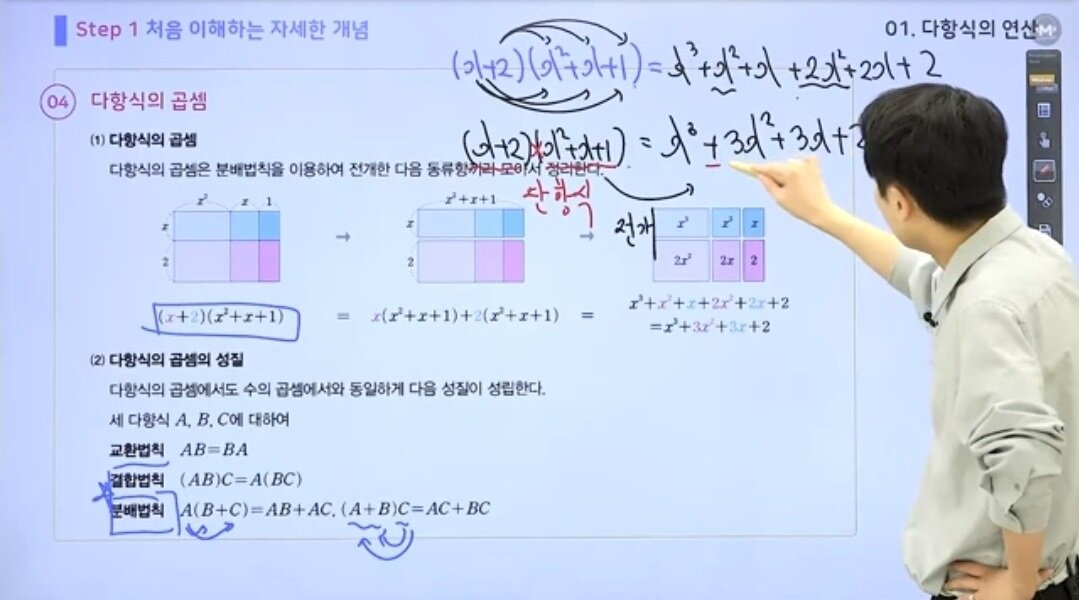 Step 1 처음 이해하는 자세한 개념
01. 다항식의 연산
M
(x+2)(x²+x+1)=x³+x²+x+2x²+2x+2
04 다항식의 곱셈
(x+2)(x²+x+1) = x³+3x²+3x+2
(1) 다항식의 곱셈
다항식의 곱셈은 분배법칙을 이용하여 전개한 다음 동류항끼리 모아서 정리한다.
단항식
x² x 1
x
2
→
x²+x+1
x
2
→
전개
x³ x² x
2x² 2x 2
(x+2)(x²+x+1) = x(x²+x+1)+2(x²+x+1) =
x³+x²+x+2x²+2x+2
=x³+3x²+3x+2
(2) 다항식의 곱셈의 성질
다항식의 곱셈에서도 수의 곱셈에서와 동일하게 다음 성질이 성립한다.
세 다항식 A, B, C에 대하여
교환법칙 AB=BA
결합법칙 (AB)C=A(BC)
분배법칙 A(B+C)=AB+AC, (A+B)C=AC+BC